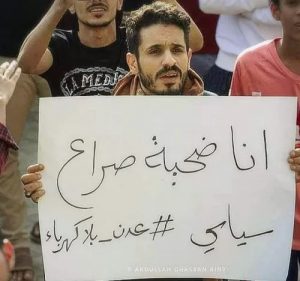 LA
انا ضحية صراع
سياسي #عدن_بلا كهرباء
© ABDULLAH GHASSAN